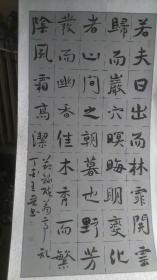 若夫日出而林霏開雲
歸而巖穴暝晦明變化
者山間之朝暮也野芳
發而幽香佳木秀而繁
陰風霜高潔